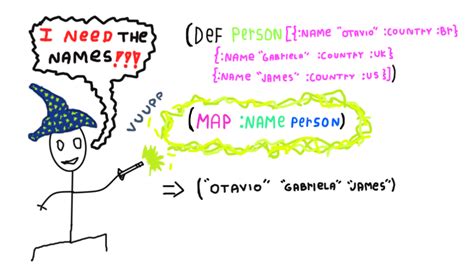 I NEED THE
NAMES!!!
(DEF PERSON [{:NAME "OTAVIO" :COUNTRY :Br}
{:NAME "GABRIELA" :COUNTRY :UK}
{:NAME "JAMES" :COUNTRY :US}])
VUUPP
(MAP :NAME PERSON)
=> ("OTAVIO" "GABRIELA" "JAMES")